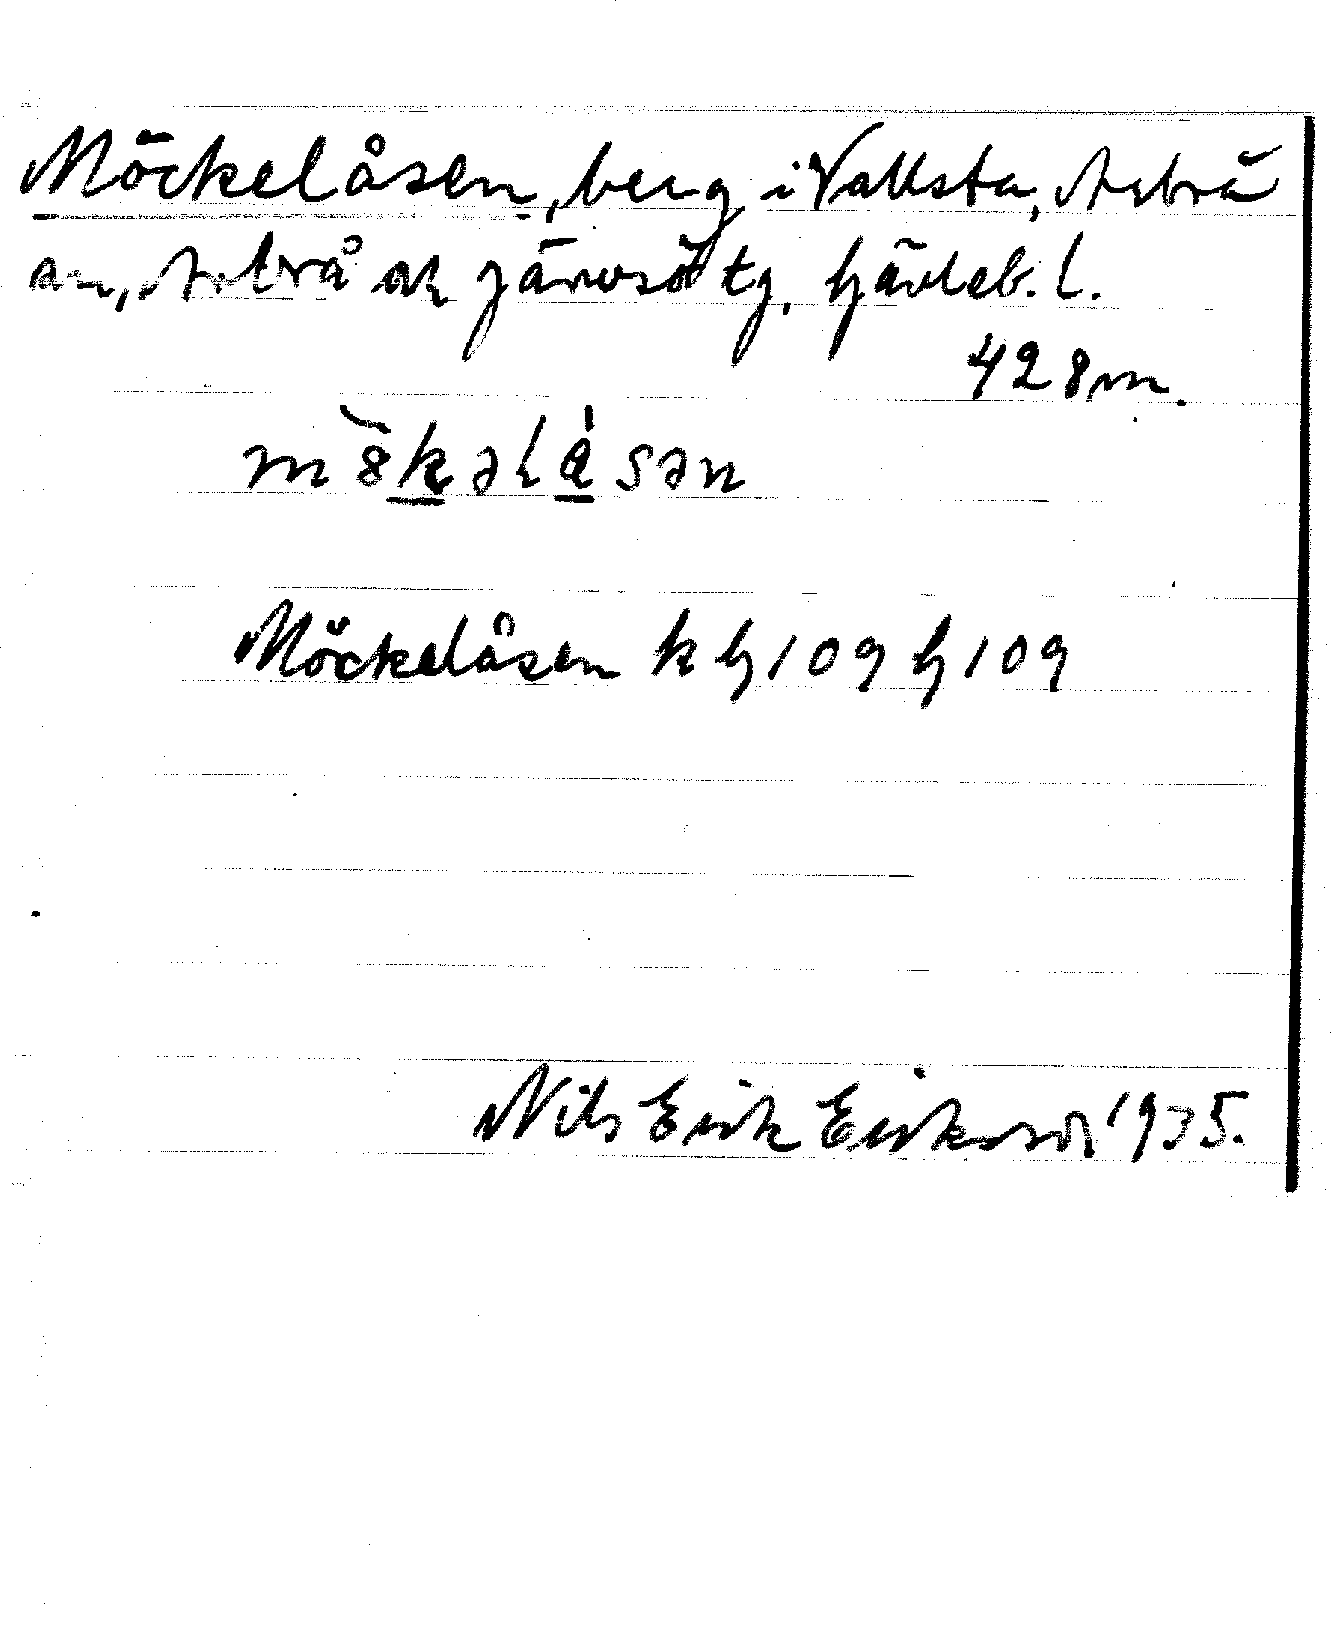 Möckelåsen, berg i Vallsta, Arbrå
sn, Arbrå ok Järvsö tg. Gävleb. l.
428 m.
Möckelåsen k G 109 G 109
Nils Erik Eriksson 1935.